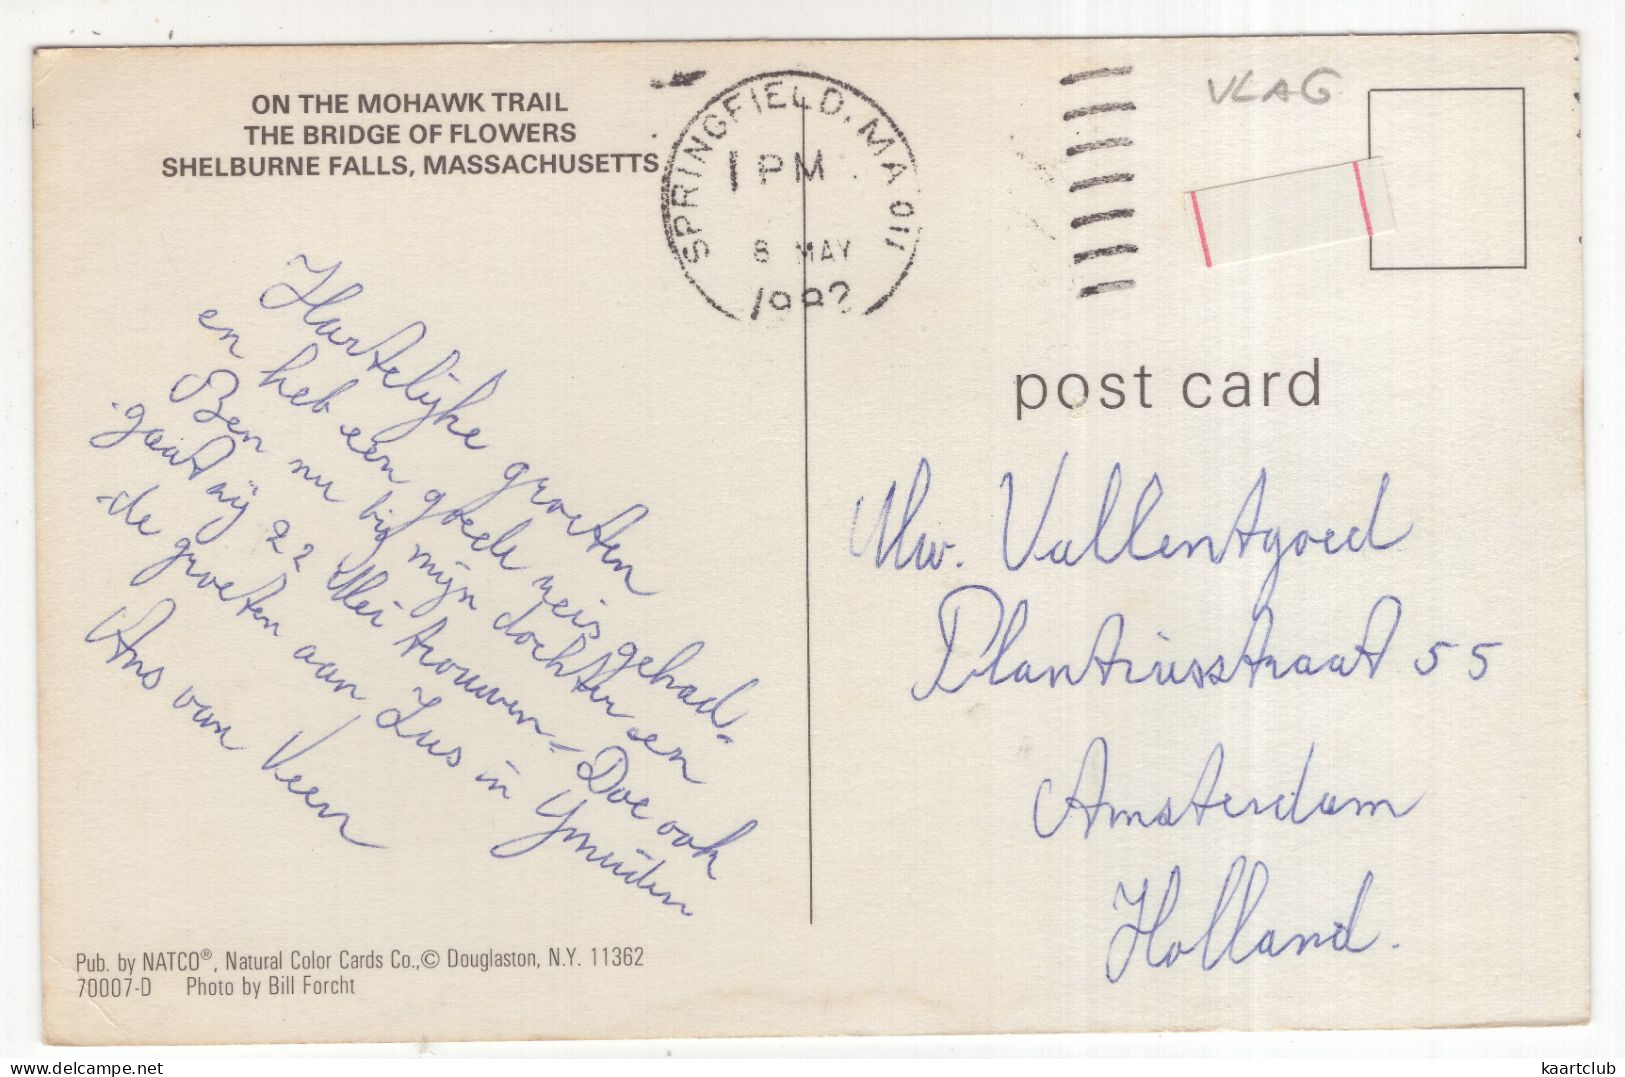 ON THE MOHAWK TRAIL
THE BRIDGE OF FLOWERS
SHELBURNE FALLS, MASSACHUSETTS
SPRINGFIELD, MA 011
1 PM
8 MAY
198
VLAG
post card
Hartelijke groeten
en heb een goede reis gehad-
Ben nu bij mijn dochter en
gaat zij 22 Mei trouwen - Doe ook
de groeten aan Lus in Ymuiden
Ans van Veen
Mw. Vallentgoed
Plantiusstraat 55
Amsterdam
Holland.
Pub. by NATCO®, Natural Color Cards Co.,© Douglaston, N.Y. 11362
70007-D Photo by Bill Forcht
kaartclub